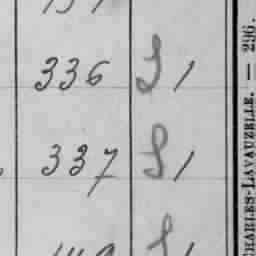 336 S 1
337 S 1
CHARLES-LAVAUZELLE. — 296.